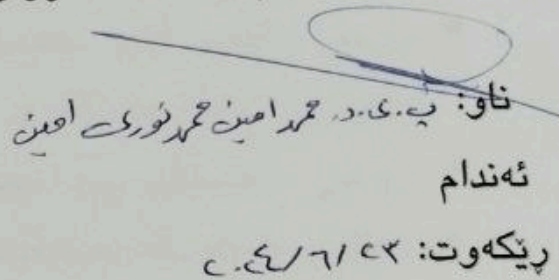 ناو: پ.ی.د. محمد امين محمد نوری امين
ئەندام
ڕێکەوت: ٢٠٢٤/٦/٢٣